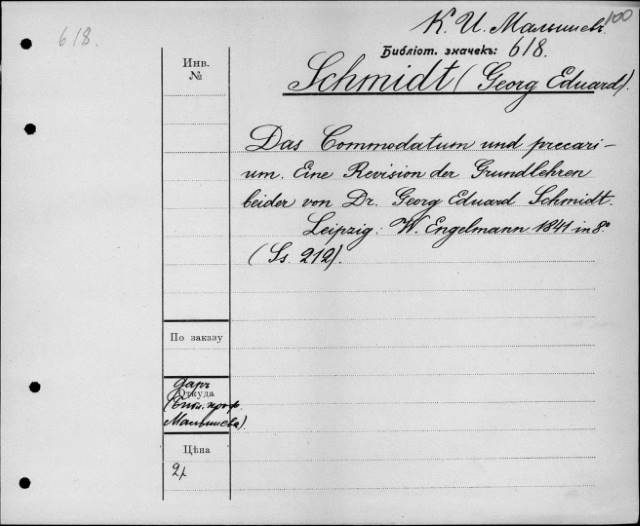 100
К. И. Малышев
618.
Библіот. значекъ: 618.
Schmidt (Georg Eduard).
Инв.
№
Das Commodatum und precari-
um. Eine Revision der Grundlehren
beider von Dr. Georg Eduard Schmidt.
Leipzig: W. Engelmann 1841 in 8°
(Ss. 212).
По заказу
Даръ
Откуда
(Библ. проф.
Малышева).
Цѣна
2р